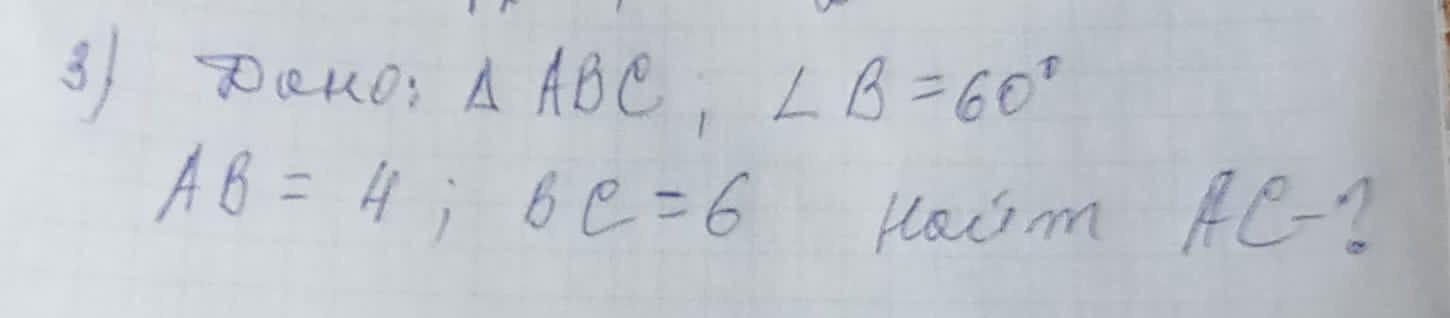 3) Дано: Δ ABC; ∠ B = 60°
AB = 4; BC = 6 найт AC - ?